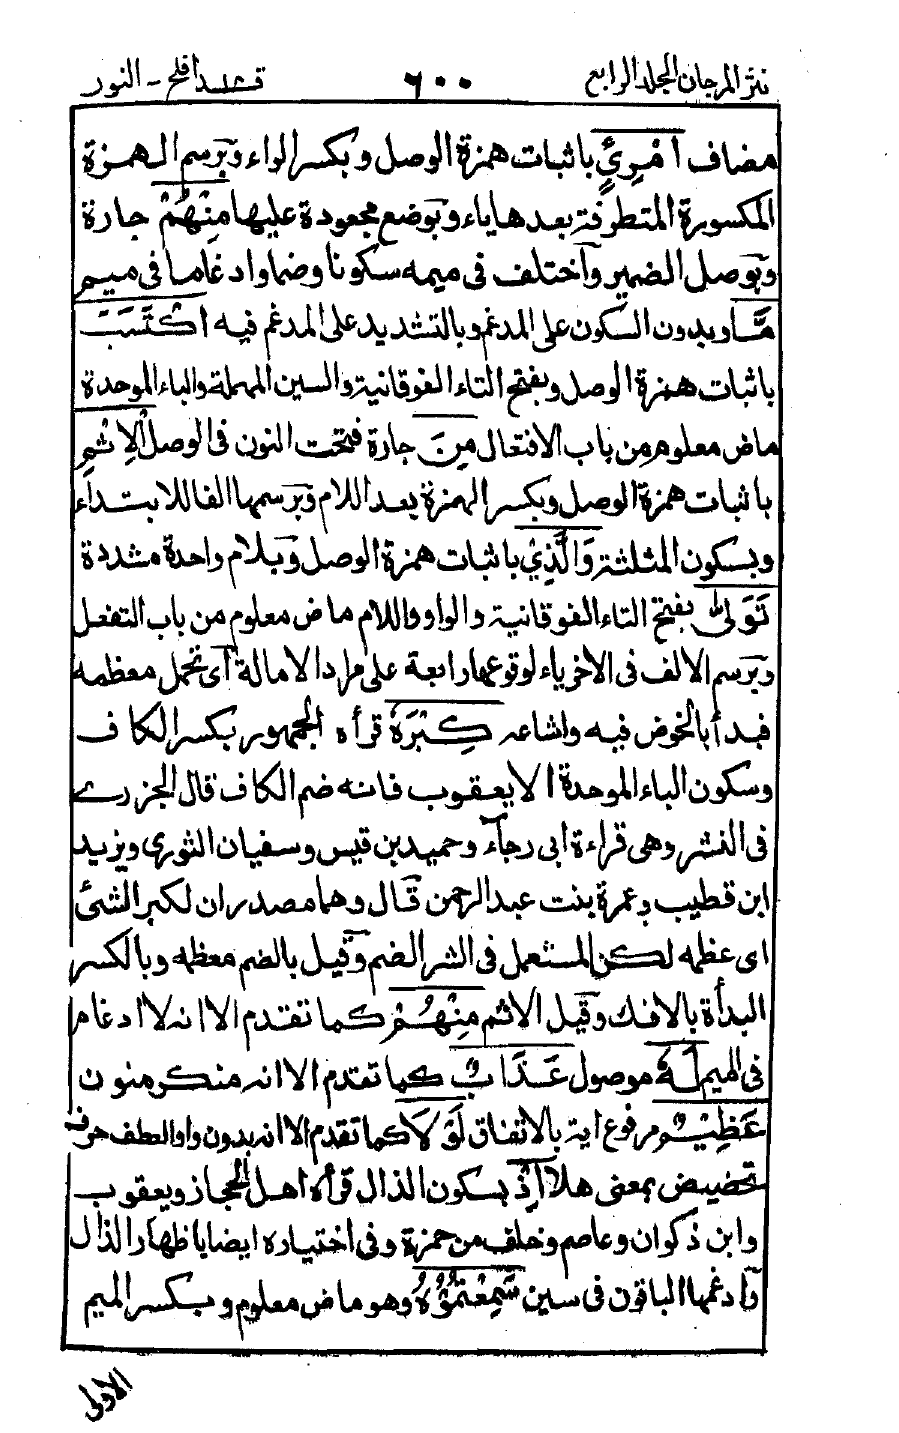 نثر المرجان المجلد الرابع ٦٠٠ قد افلح - النور
مضاف امْرِئٍ باثبات همزة الوصل وبكسر الراء وبَرسم الهمزة
المكسورة المتطرفة بعدها ياء وبَوضع مجعودة عليها مِنْهُمْ جارة
وبَوصل الضمير وآختلف فى ميمه سكونا وضما وادغاما فى ميم
مَّا وبدون السكون على المدغم وبالتشديد على المدغم فيه اكْتَسَبَ
باثبات همزة الوصل وبفتح التاء الفوقانية والسين المهملة والباء الموحدة
ماض معلوم من باب الافتعال مِنَ جارة فتحت النون فى الوصل الْاِثْمِ
باثبات همزة الوصل وبكسر الهمزة بعد اللام وبَرسمها الفا للابتداء
وبسكون المثلثة وَالَّذِيْ باثبات همزة الوصل وبَلام واحدة مشددة
تَوَلّٰى بفتح التاء الفوقانية والواو واللام ماض معلوم من باب التفعل
وبَرسم الالف فى الاخر ياء لوقوعها رابعة على مراد الامالة آى تحمل معظمه
فبدأ بالخوض فيه واشاعه كِبْرَهٗ قرأه الجمهور بكسر الكاف
وسكون الباء الموحدة الا يعقوب فانه ضم الكاف قال الجزرے
فى النشر وهى قراءة ابى رجاء وحميد بن قيس وسفيان الثورى ويزيد
ابن قطيب وعمرة بنت عبد الرحمن قال وهما مصدران لكبر الشئ
اى عظمه لكن المستعمل فى الشر الضم وقيل بالضم معظمه وبالكسر
البدأة بالافك وقيل الاثم مِنْهُمْ كما تقدم الا انه لا ادغام
فى الميم لَهٗ موصول عَذَابٌ كما تقدم الا انه منكر منون
عَظِيْمٌ مرفوع اية بالاتفاق لَوْ لَا كما تقدم الا انه بدون واو العطف حرف
تحضيض بمعنى هلا اِذْ بسكون الذال قرأه اهل الحجاز ويعقوب
وابن ذكوان وعاصم وخلف من حمزة وفى اختياره ايضا باظهار الذال
وآدغمها الباقون فى سين سَمِعْتُمُوْهُ وهو ماض معلوم وبكسر الميم
الاولى